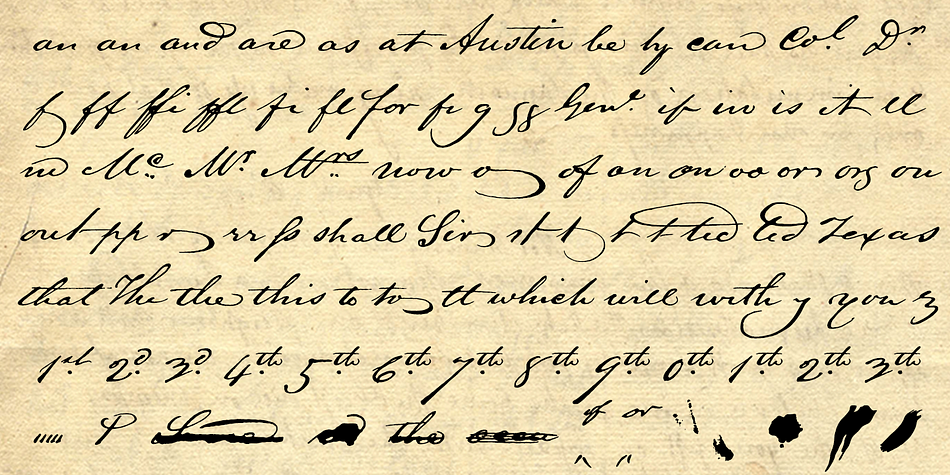 an an and are as at Austin be by can Col. Dr.
f ff ffi ffl fi fl for fr g gg Genl. if in is it ll
m Mc. Mr. Mrs. now o of on on oo or org ou
out pp r rr ss shall Sir st t t t ted ted Texas
that The the this to to tt which will with y you z
1st. 2d. 3d. 4th. 5th. 6th. 7th. 8th. 9th. 0th. 1th. 2th. 3th.
of or
P the